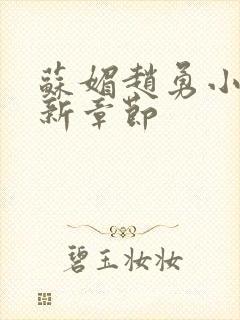 蘇媚趙勇小
新章節
碧玉妝妝